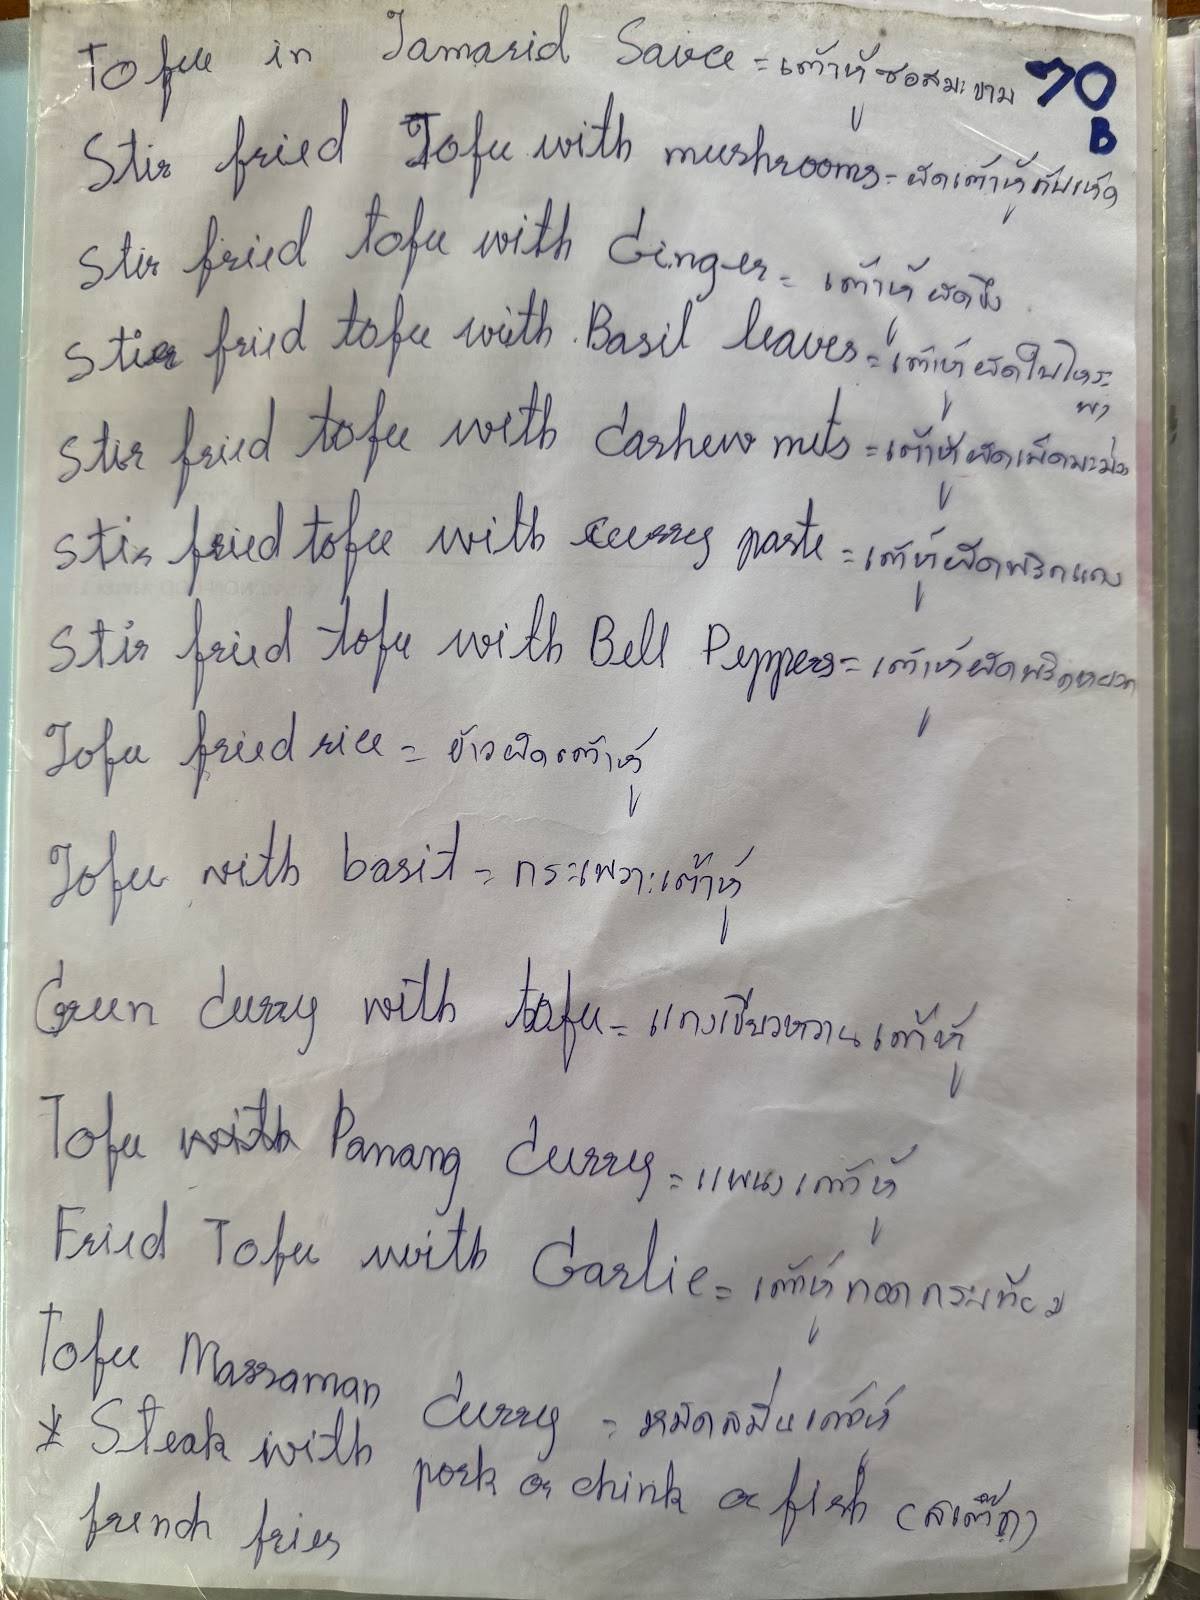 Tofu in Tamarid Sauce = เต้าหู้ซอสมะขาม 70 B
Stir fried Tofu with mushrooms = ผัดเต้าหู้กับเห็ด
Stir fried tofu with Ginger = เต้าหู้ผัดขิง
Stir fried tofu with Basil leaves = เต้าหู้ผัดใบโหระ
พา
Stir fried tofu with Cashew nuts = เต้าหู้ผัดเม็ดมะม่วง
Stir fried tofu with curry paste = เต้าหู้ผัดพริกแกง
Stir fried tofu with Bell Peppers = เต้าหู้ผัดพริกหยวก
Tofu fried rice = ข้าวผัดเต้าหู้
Tofu with basit = กระเพราะเต้าหู้
Green Curry with tofu = แกงเขียวหวานเต้าหู้
Tofu with Panang Curry = แพนงเต้าหู้
Fried Tofu with Garlic = เต้าหู้ทอดกระเทียม
Tofu Massaman Curry = มัสมั่นเต้าหู้
* Steak with pork or chink or fish (สเต็ก)
french fries